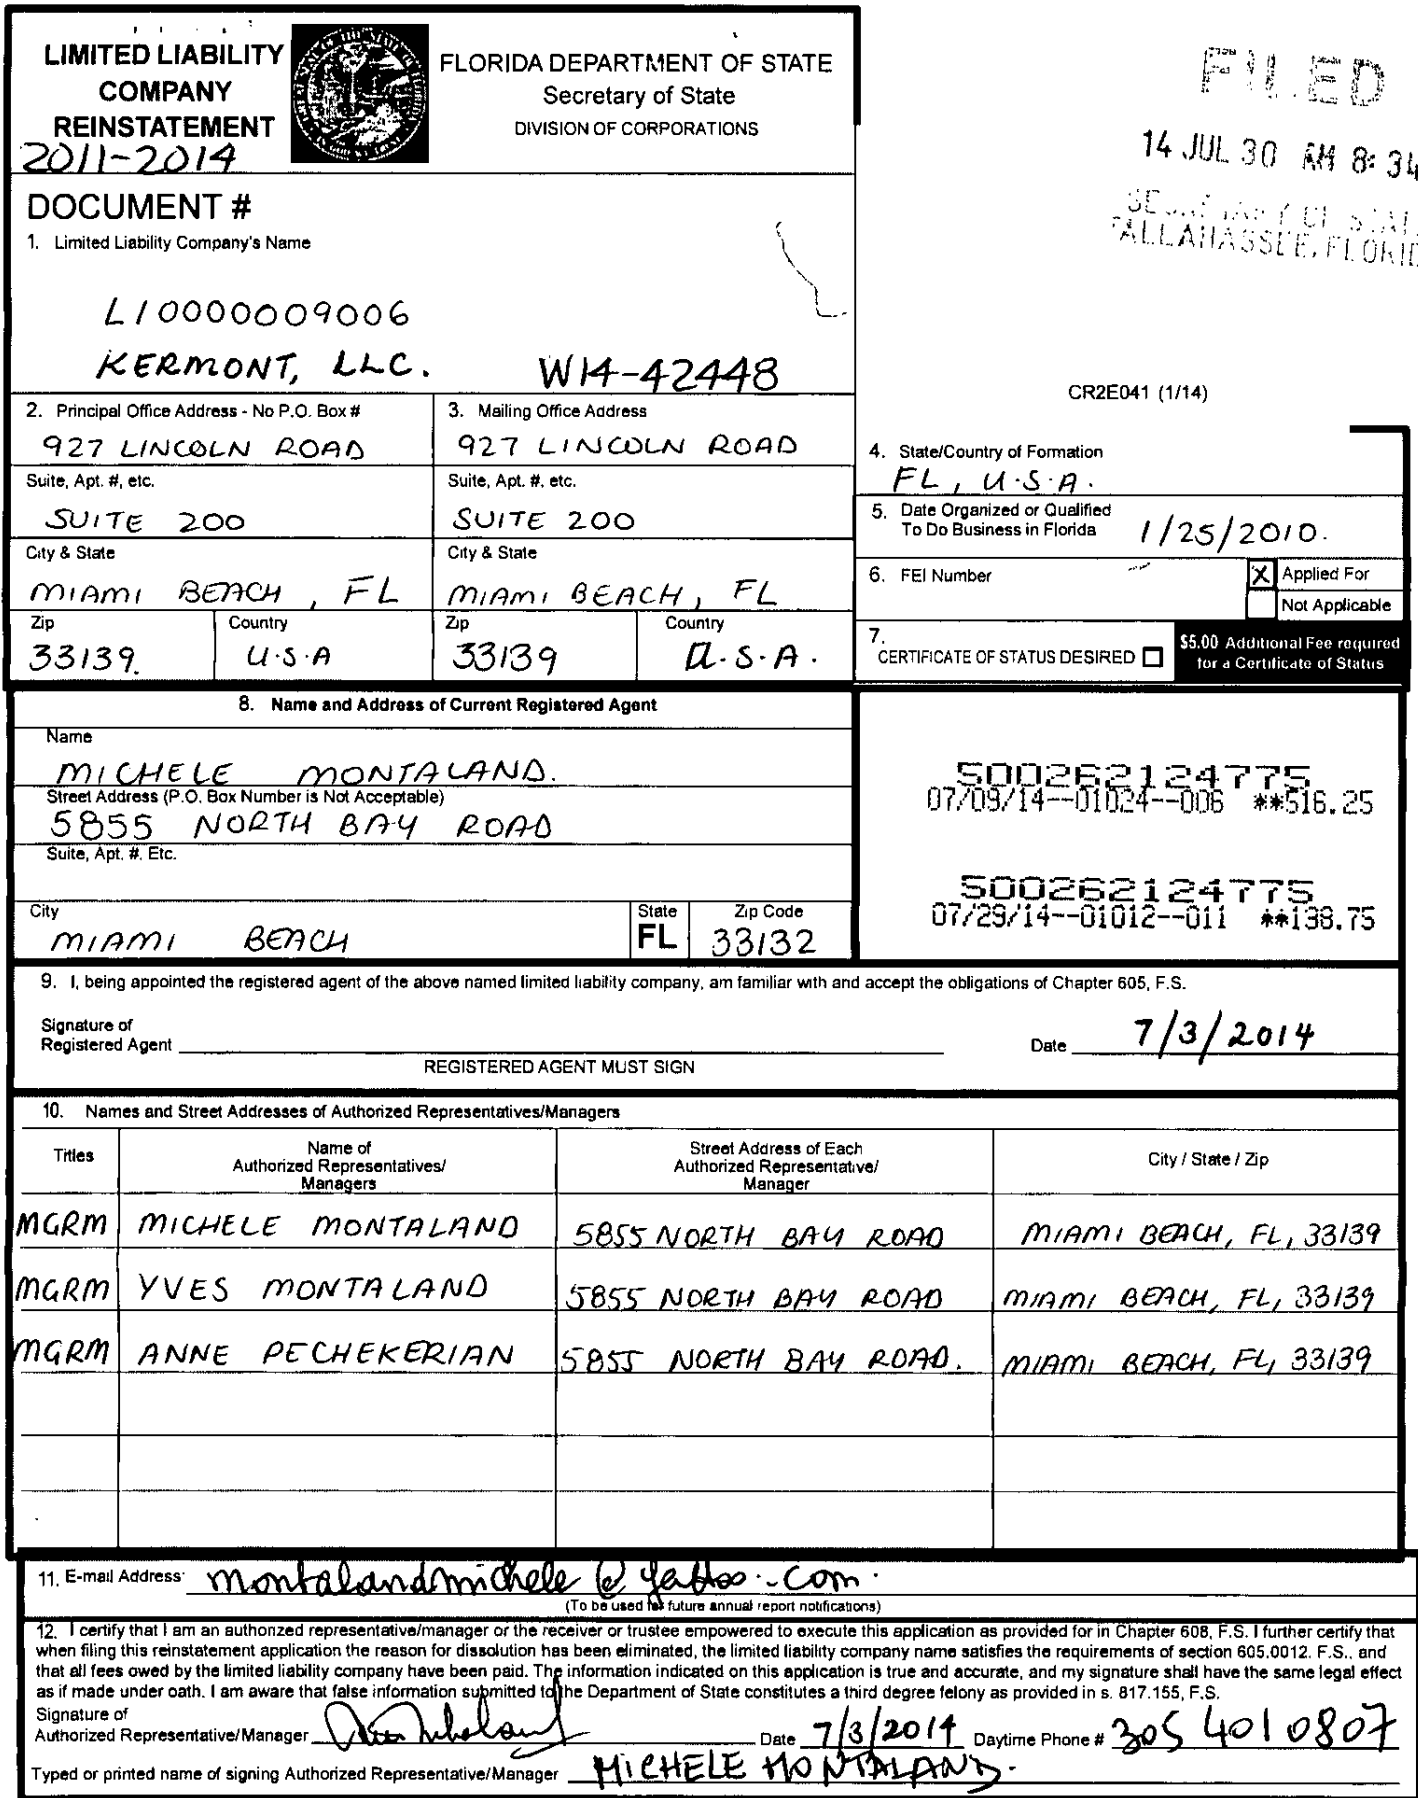 LIMITED LIABILITY
COMPANY
REINSTATEMENT
2011-2014
FLORIDA DEPARTMENT OF STATE
Secretary of State
DIVISION OF CORPORATIONS
FILED
14 JUL 30 AM 8:34
SECRETARY OF STAT
TALLAHASSEE, FLORID
DOCUMENT #
1. Limited Liability Company's Name
L10000009006
KERMONT, LLC.
W14-42448
CR2E041 (1/14)
2. Principal Office Address - No P.O. Box #
927 LINCOLN ROAD
3. Mailing Office Address
927 LINCOLN ROAD
Suite, Apt. #, etc.
SUITE 200
Suite, Apt. #, etc.
SUITE 200
City & State
MIAMI BEACH, FL
City & State
MIAMI BEACH, FL
Zip
33139.
Country
U.S.A
Zip
33139
Country
U.S.A.
4. State/Country of Formation
FL, U.S.A.
5. Date Organized or Qualified
To Do Business in Florida 1/25/2010.
6. FEI Number
X Applied For
Not Applicable
7.
CERTIFICATE OF STATUS DESIRED
$5.00 Additional Fee required
for a Certificate of Status
8. Name and Address of Current Registered Agent
Name
MICHELE MONTALAND.
Street Address (P.O. Box Number is Not Acceptable)
5855 NORTH BAY ROAD
Suite, Apt. #. Etc.
City
MIAMI BEACH
State
FL
Zip Code
33132
500262124775
07/09/14--01024--006 **516.25
500262124775
07/29/14--01012--011 **138.75
9. I, being appointed the registered agent of the above named limited liability company, am familiar with and accept the obligations of Chapter 605, F.S.
Signature of
Registered Agent
Date 7/3/2014
REGISTERED AGENT MUST SIGN
10. Names and Street Addresses of Authorized Representatives/Managers
Titles
Name of
Authorized Representatives/
Managers
Street Address of Each
Authorized Representative/
Manager
City / State / Zip
MGRM MICHELE MONTALAND 5855 NORTH BAY ROAD MIAMI BEACH, FL, 33139
MGRM YVES MONTALAND 5855 NORTH BAY ROAD MIAMI BEACH, FL, 33139
MGRM ANNE PECHEKERIAN 5855 NORTH BAY ROAD. MIAMI BEACH, FL, 33139
11. E-mail Address: montalandmichele@yahoo.com.
(To be used for future annual report notifications)
12. I certify that I am an authorized representative/manager or the receiver or trustee empowered to execute this application as provided for in Chapter 608, F.S. I further certify that
when filing this reinstatement application the reason for dissolution has been eliminated, the limited liability company name satisfies the requirements of section 605.0012. F.S., and
that all fees owed by the limited liability company have been paid. The information indicated on this application is true and accurate, and my signature shall have the same legal effect
as if made under oath. I am aware that false information submitted to the Department of State constitutes a third degree felony as provided in s. 817.155, F.S.
Signature of
Authorized Representative/Manager
Date 7/3/2014 Daytime Phone # 305 4010807
Typed or printed name of signing Authorized Representative/Manager MICHELE MONTALAND.